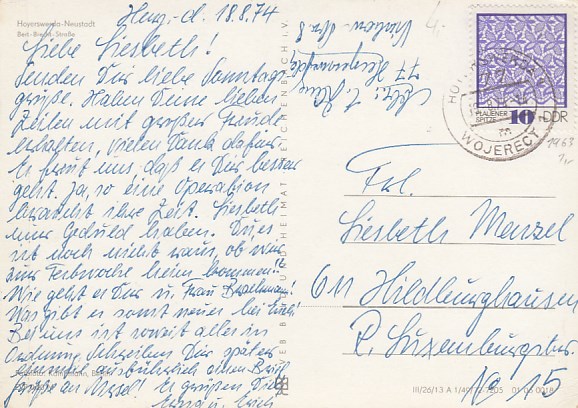 Hoyerswerda-Neustadt
Bert-Brecht-Straße
Hoy., d. 18.8.74
Liebe Liesbeth!
Senden Dir liebe Sonntags-
grüße. Haben Deine lieben
Zeilen mit großer Freude
erhalten, vielen Dank dafür.
Es freut uns, daß es Dir besser
geht. Ja, so eine Operation
braucht ihre Zeit. Liesbeth
nur Geduld haben. Ob es
ist noch nicht raus, ob wir
zur Festwoche heim kommen!!
Wie geht es Dir u. Frau
Was gibt es sonst neues bei Euch?
Bei uns ist soweit alles in
Ordnung. Schreiben Dir später
einmal ausführlich einen Brief.
Grüße an Ursel! Es grüßen Dich
u. Erich
77 Hoyerswerda
PLAUENER
SPITZE
10
DDR
HOYERSWERDA
WOJERECY
1963
Frl.
Liesbeth Menzel
611 Hildburghausen
R. Luxemburgstr.
No 15
VEB BILD UND HEIMAT REICHENBACH I. V.
III/26/13 A 1/
01 05 0018